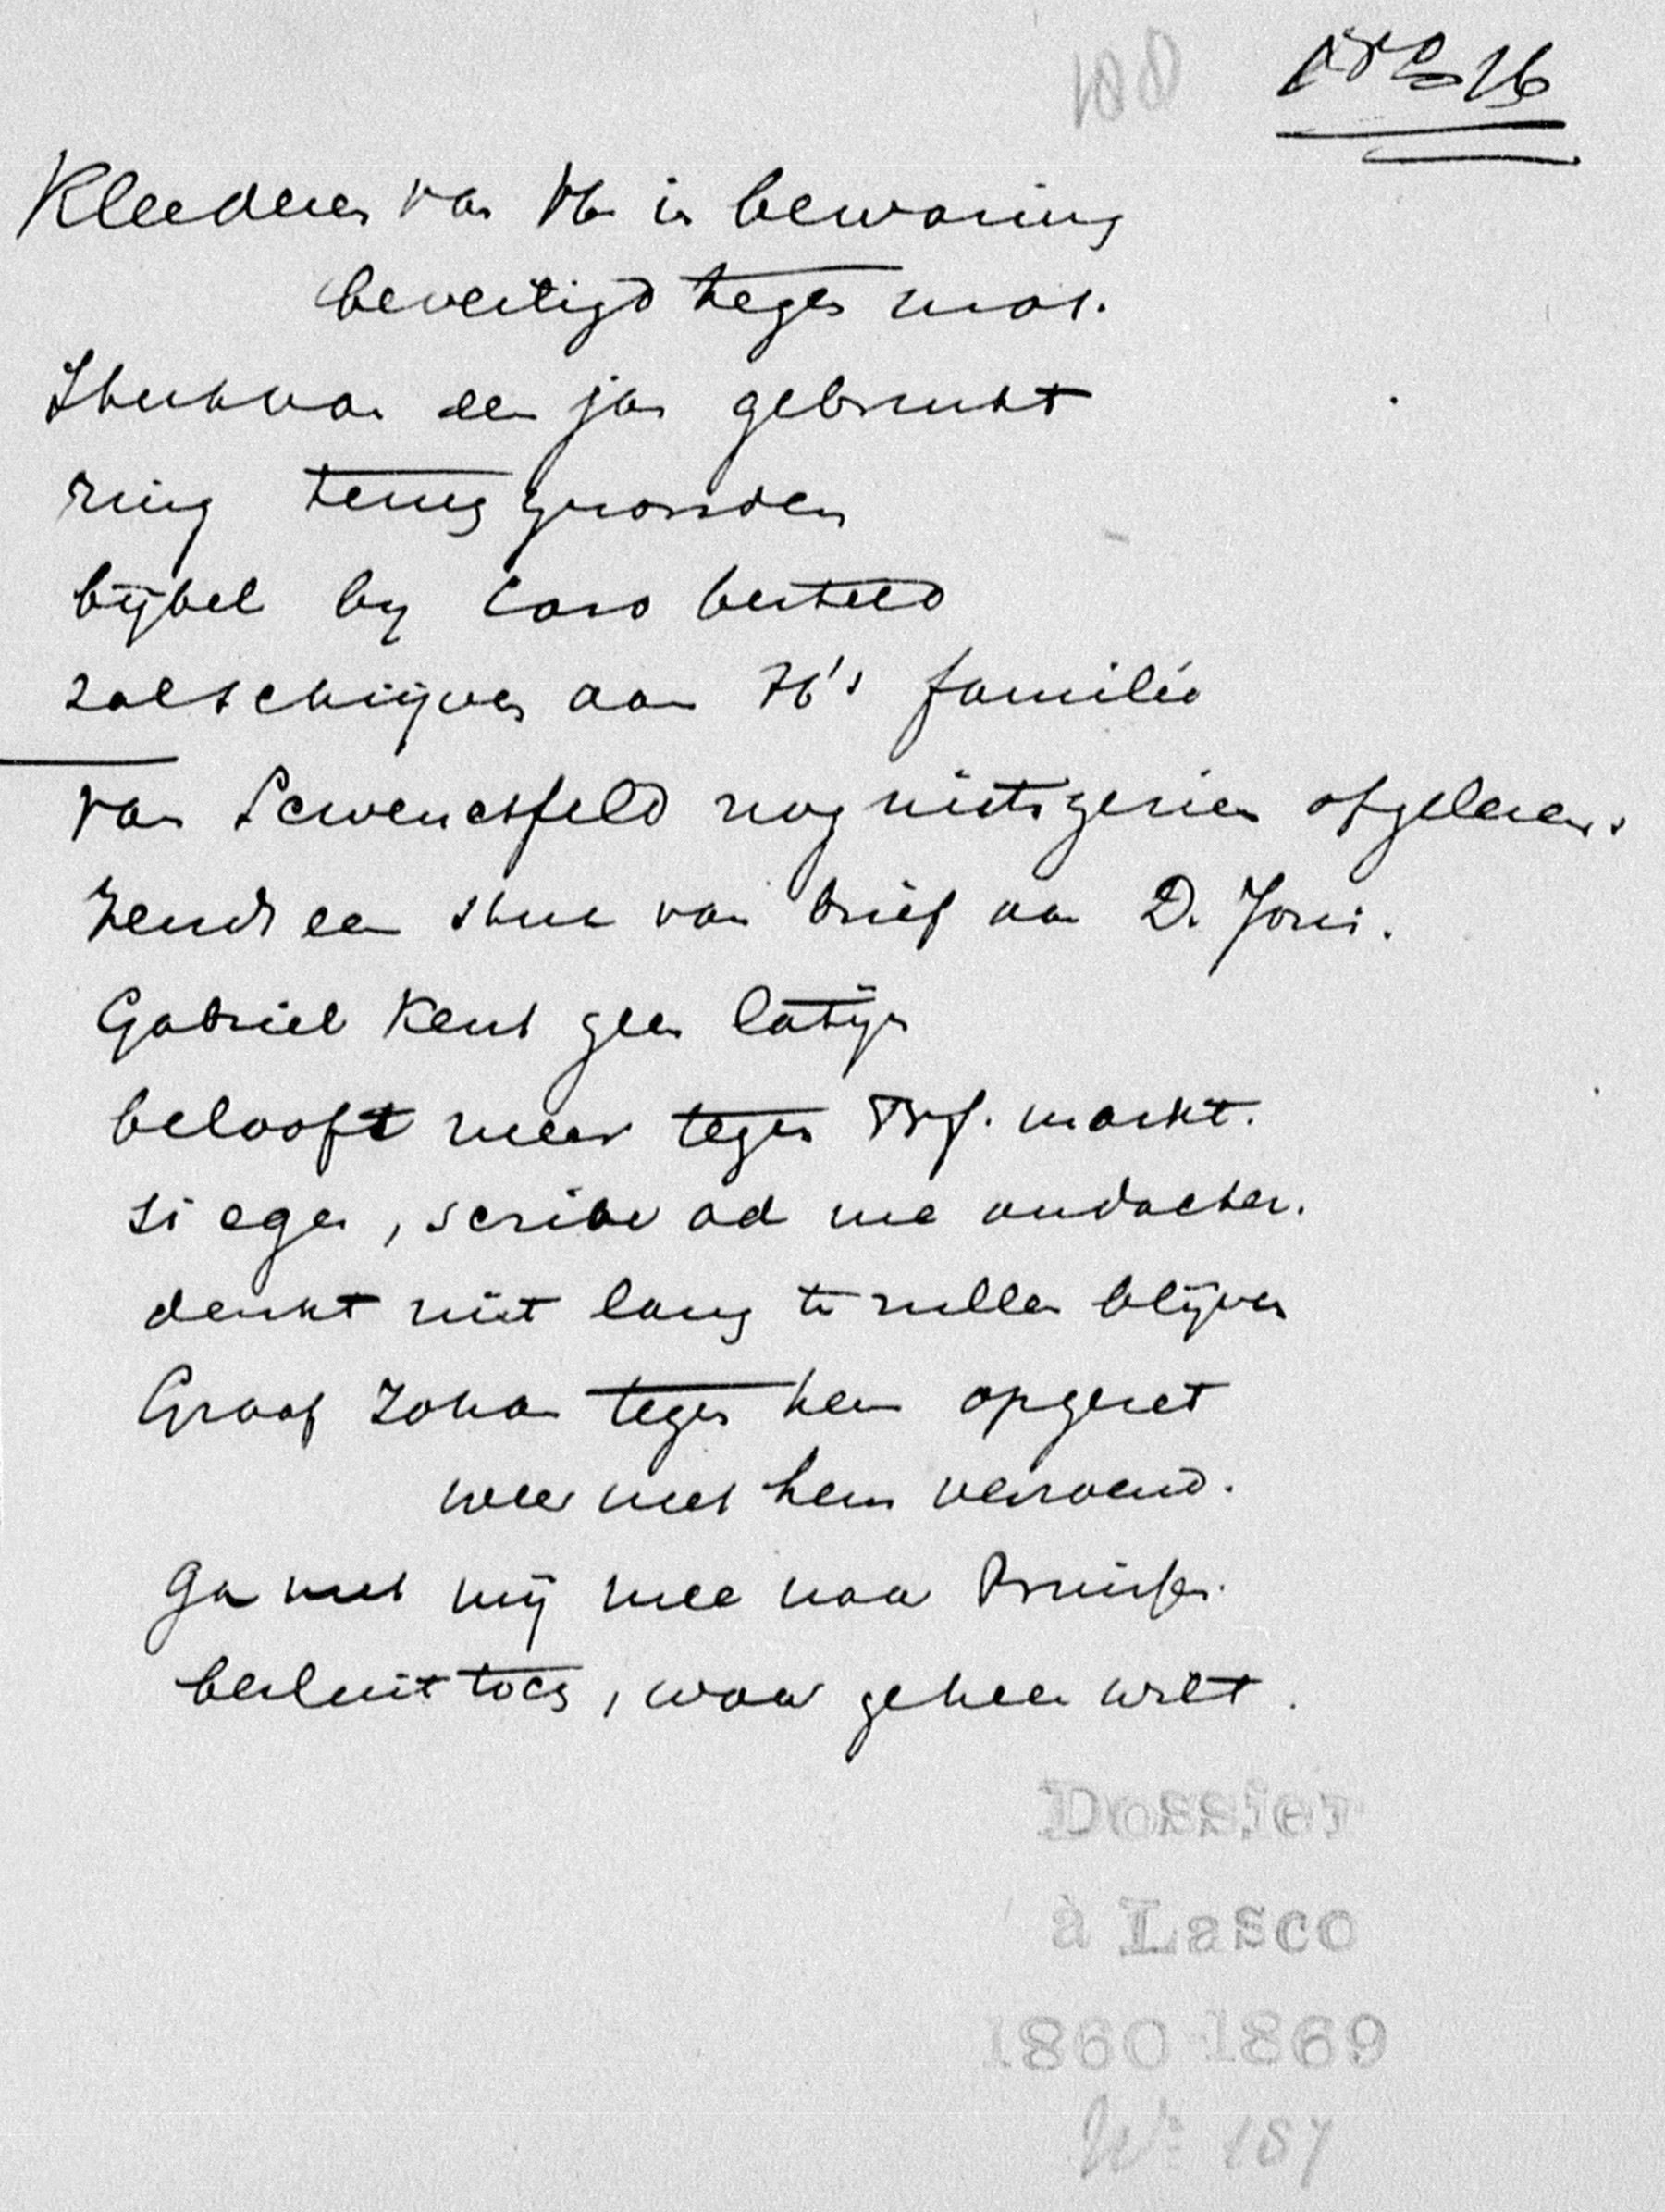 100 No 16
Kleederen van H. in bewaring
beveiligd tegen mot.
Stuk van een jas gebruikt
ring terug gezonden
bijbel by besteld
zal schrijven aan H's familie
van Scwencsfeld nog niets gezien of gelezen.
Zendt een stuk van brief aan D. Joris.
Gabriel Kent geen latijn
belooft meer tegen Frf. markt.
si eges, scribe ad me audacter.
denkt niet lang te zullen blijven
Graaf Johan tegen hem opgezet
weer met hem verzoend.
Ga met mij mee naar Pruisen.
besluit toch, waar ge heen wilt.
Dossier
à Lasco
1860 1869
No 157